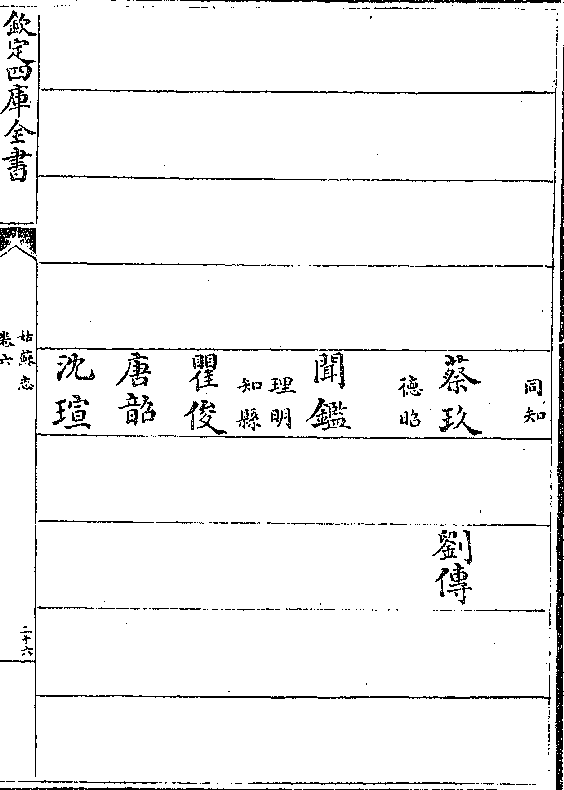 同知
蔡玖
德昭
聞鑑
理明
知縣
瞿俊
唐韶
沈瑄
劉傳
欽定四庫全書
姑蘇志
卷六
二十六